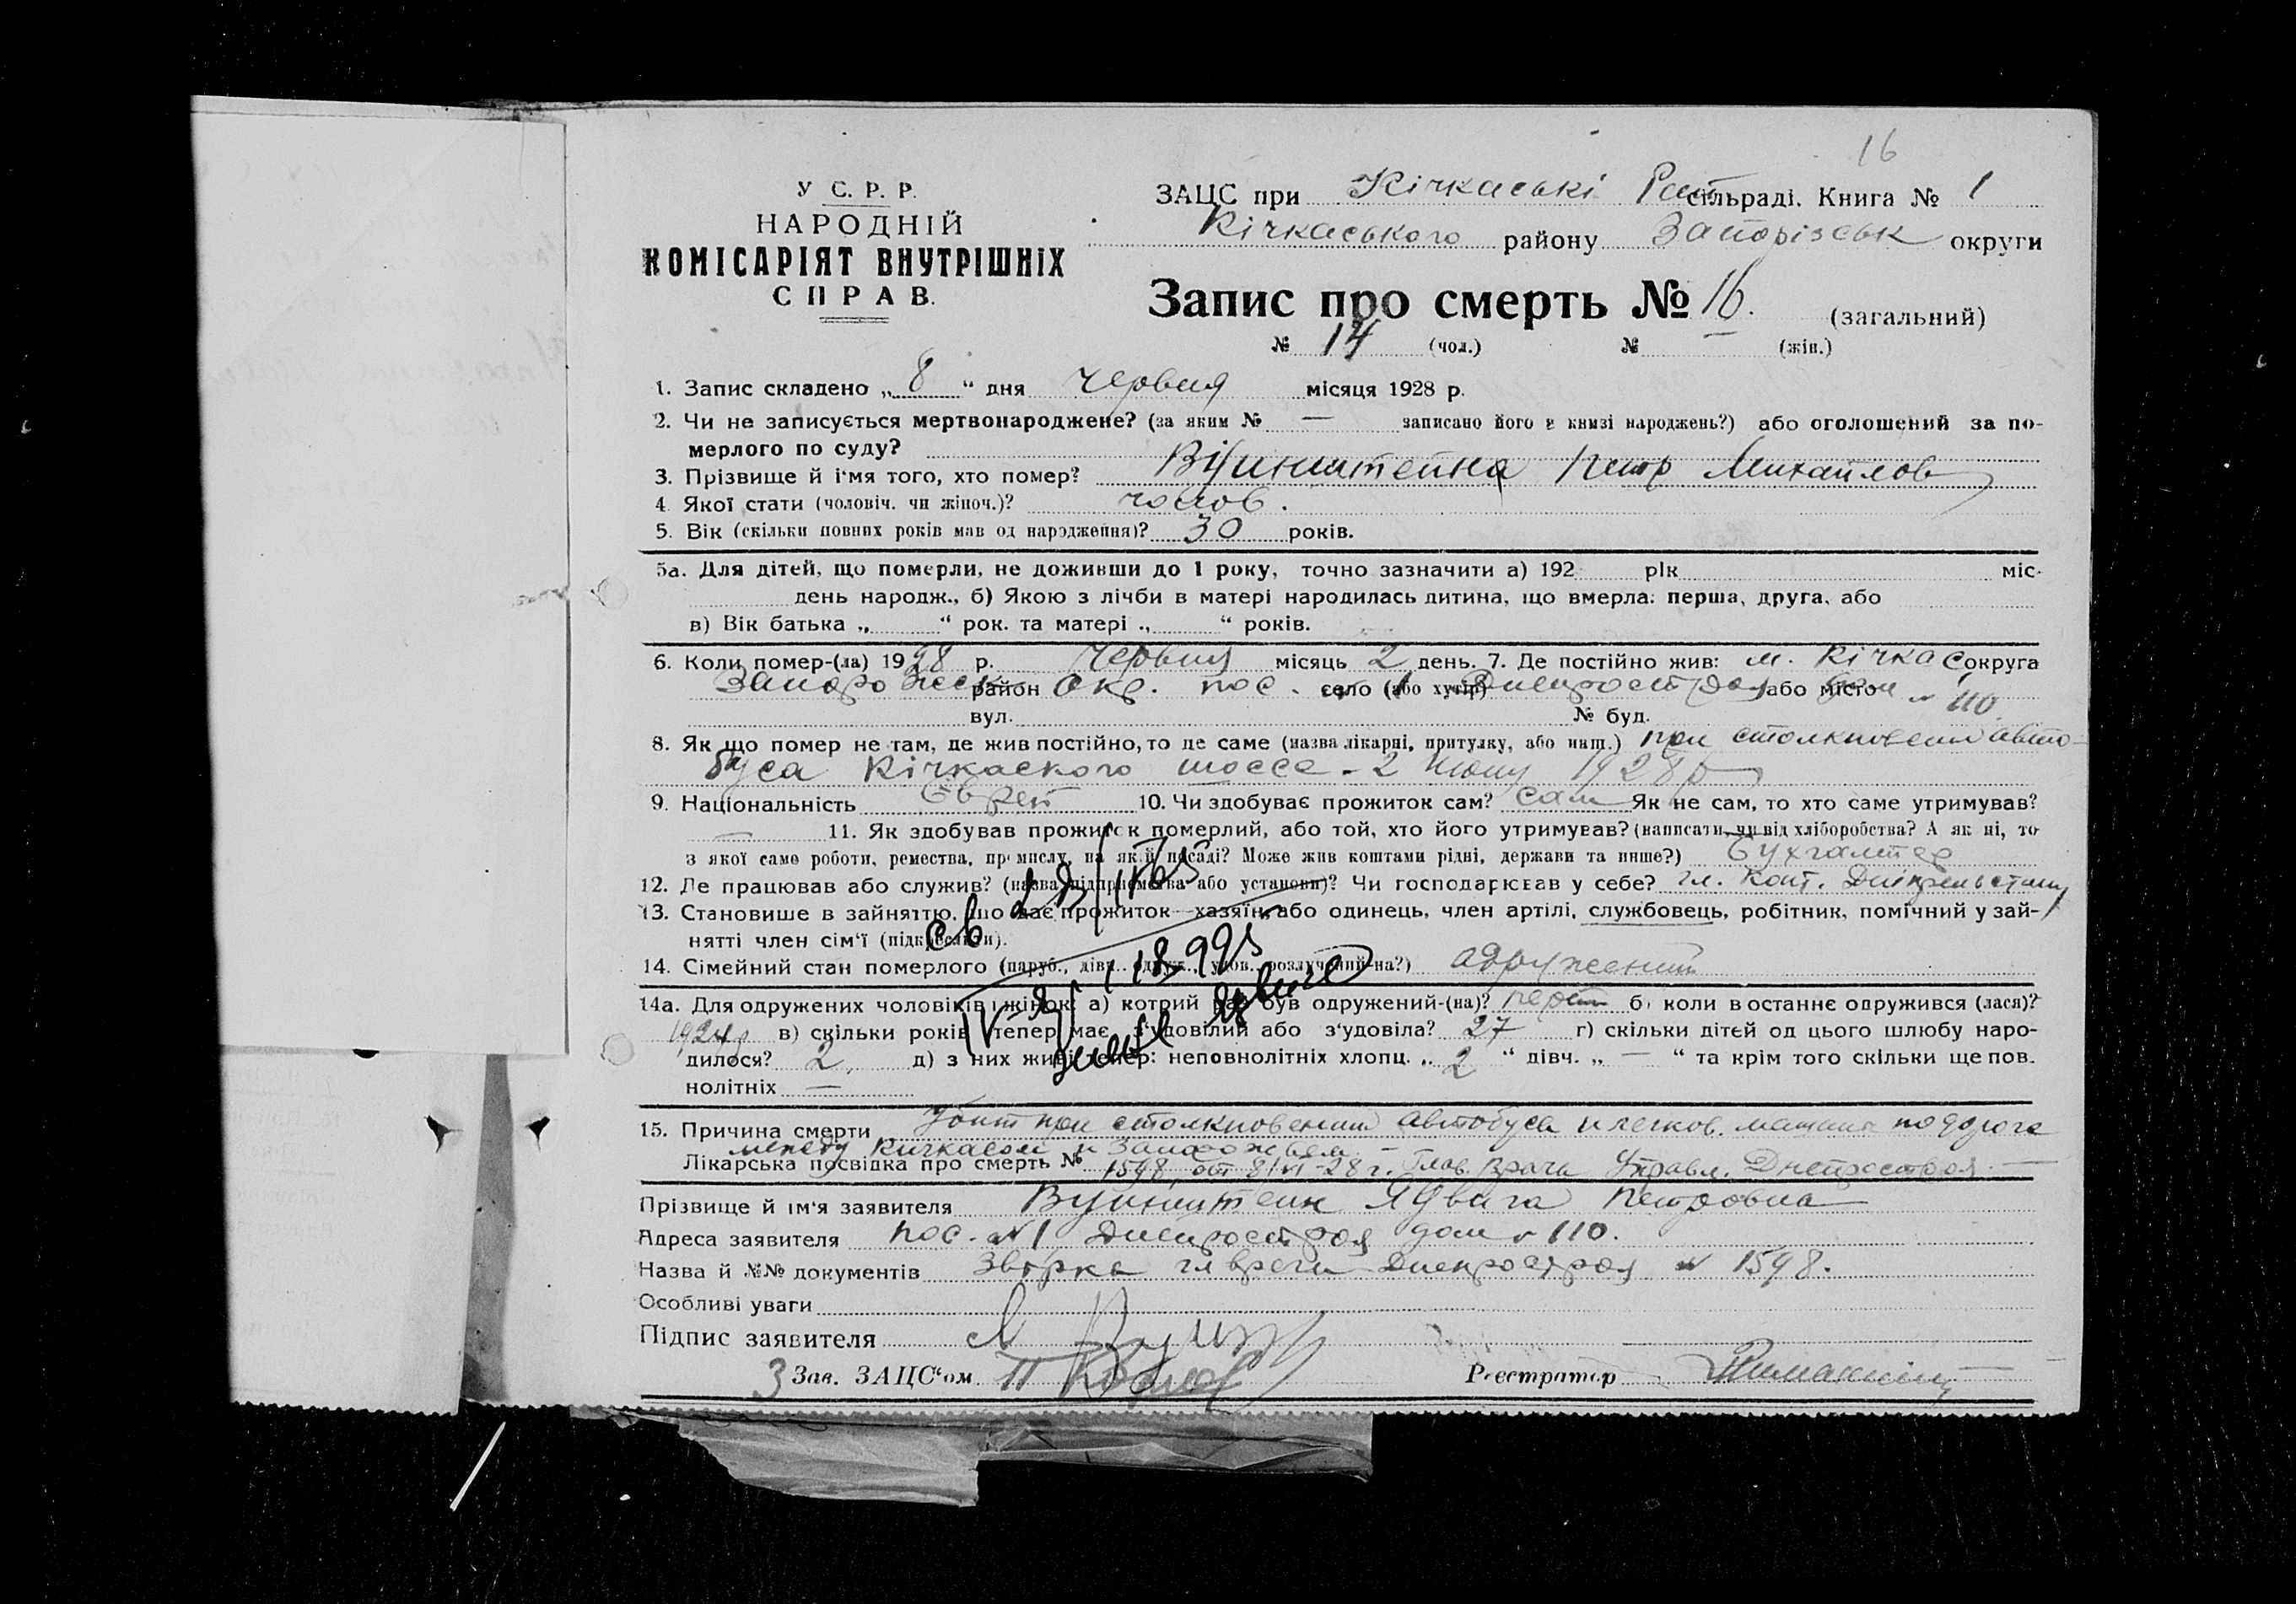 16
У С. Р. Р.
НАРОДНІЙ
КОМІСАРІЯТ ВНУТРІШНІХ
СПРАВ.
ЗАЦС при Кічкаські сільраді. Книга № 1
Кічкаського району Запорізськ округи
Запис про смерть № 16. (загальний)
№ 14 (чол.) № — (жін.)
1. Запис складено „ 8 “ дня червня місяця 1928 р.
2. Чи не записується мертвонароджене? (за яким № — записано його в книзі народжень?) або оголошений за по-
мерлого по суду?
3. Прізвище й ім'я того, хто помер? Петр Михайлов
4. Якої стати (чоловіч. чи жіноч.)? чолов.
5. Вік (скільки повних років мав од народження)? 30 років.
5а. Для дітей, що померли, не доживши до 1 року, точно зазначити а) 192 рік міс.
день народж., б) Якою з лічби в матері народилась дитина, що вмерла: перша, друга, або
в) Вік батька „ “ рок. та матері „ “ років.
6. Коли помер-(ла) 1928 р. червня місяць 2 день. 7. Де постійно жив: м. Кічкас округа
район Окр. пос. село (або хутір) Днепростроя або місто дом № 110
вул. № буд.
8. Як що помер не там, де жив постійно, то де саме (назва лікарні, притулку, або инш.) при столкновении авто-
буса Кічкаского шоссе - 2 Июну 1928 р
9. Національність Еврей 10. Чи здобуває прожиток сам? сам Як не сам, то хто саме утримував?
— 11. Як здобував прожиток померлий, або той, хто його утримував? (написати, чи від хліборобства? А як ні, то
з якої саме роботи, ремества, промислу, на якій посаді? Може жив коштами рідні, держави та инше?) Бухгалтер
12. Де працював або служив? (назва підприємства або установи)? Чи господарював у себе? гл. Конт. Дніпрельстану
13. Становише в зайняттю, що дає прожиток—хазяїн, або одинець, член артілі, службовець, робітник, помічний у зай-
нятті член сім'ї (підкреслити).
14. Сімейний стан померлого (паруб., дівч., одруж., удов., розлучений-на?) одружений
14а. Для одружених чоловіків і жінок: а) котрий раз був одружений-(на)? перш б) коли востаннє одружився (лася)?
1924 р в) скільки років тепер має з'удовілий або з'удовіла? 27 г) скільки дітей од цього шлюбу наро-
дилося? 2, д) з них живі тепер: неповнолітніх хлопц. „ 2 “ дівч. „ — “ та крім того скільки ще пов.
нолітніх —
15. Причина смерти Убит при столкновении автобуса и легков. машины по дороге
между Кичкасом и Запорожьем. —
Лікарська посвідка про смерть № 1598, от 8/VI-28 г. Глав. Врача Управл. Днепростроя. —
Прізвище й ім'я заявителя Ядвига Петровна
Адреса заявителя пос. № 1 Днепростроя дом № 110.
Назва й №№ документів гл врача Днепростроя № 1598.
Особливі уваги
Підпис заявителя
З Зав. ЗАЦС'ом Реєстратор